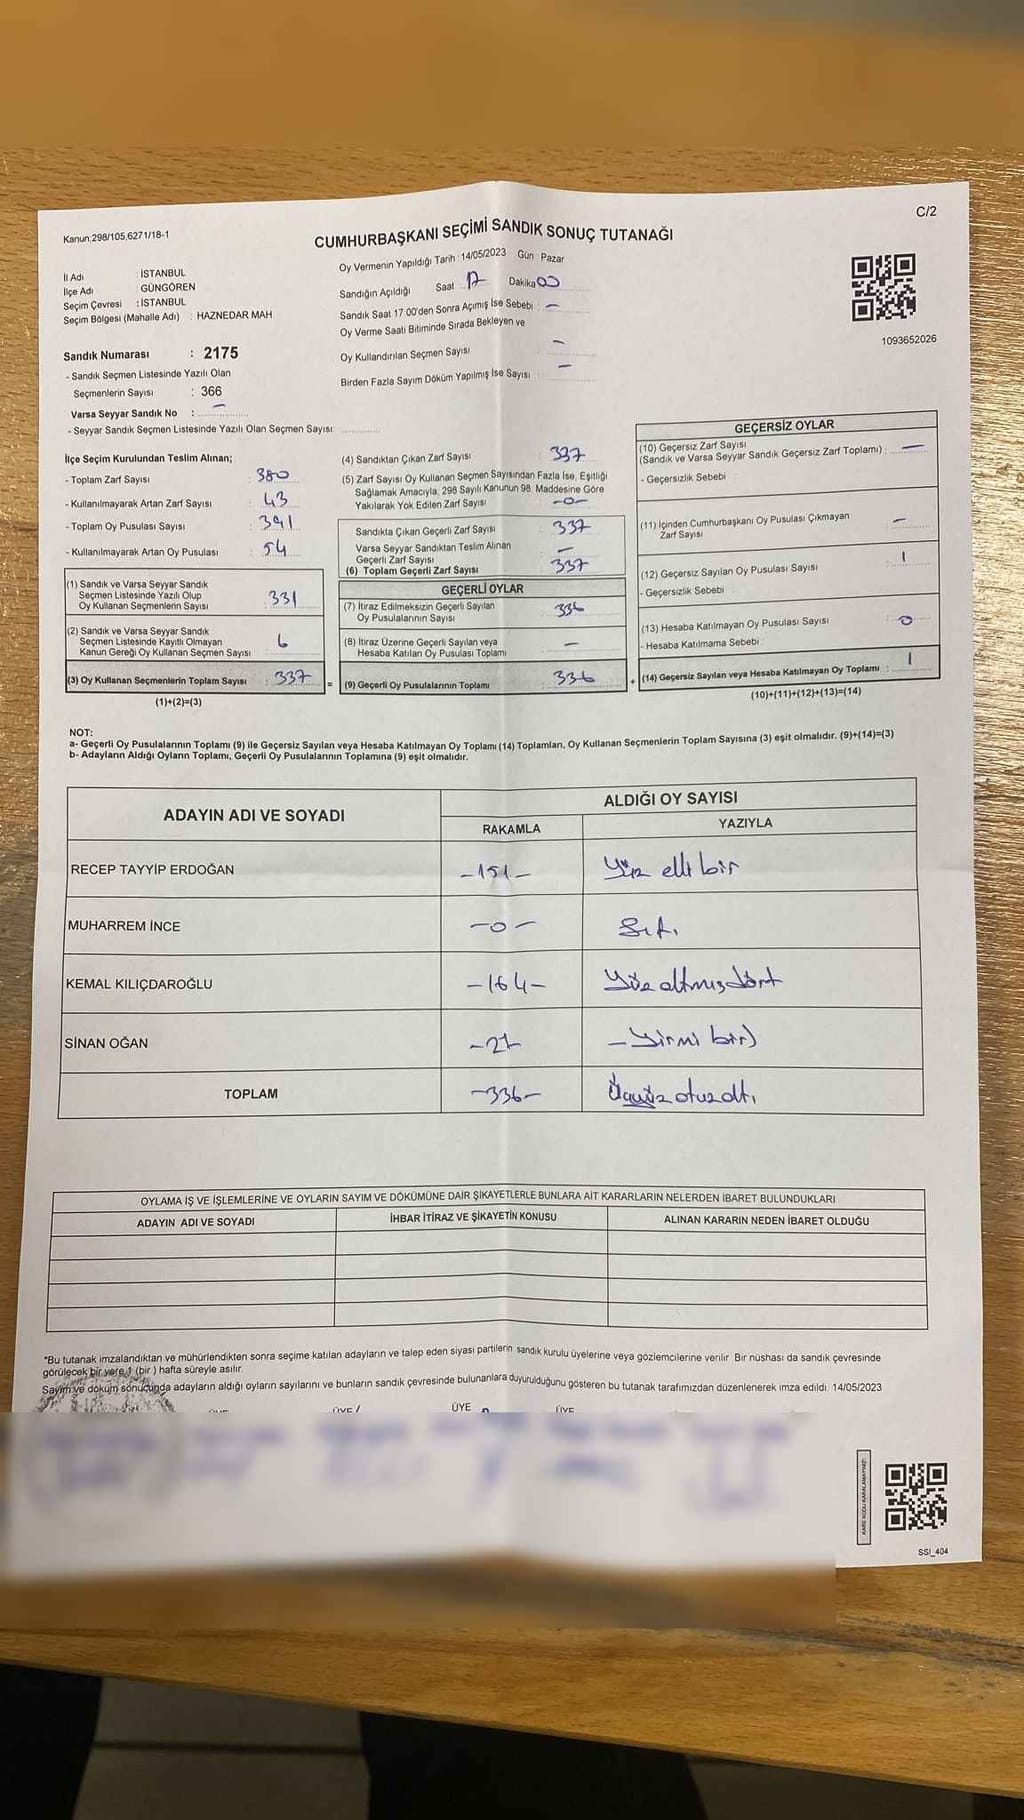 C/2
Kanun;298/105,6271/18-1
CUMHURBAŞKANI SEÇİMİ SANDIK SONUÇ TUTANAĞI
İl Adı : İSTANBUL
İlçe Adı : GÜNGÖREN
Seçim Çevresi : İSTANBUL
Seçim Bölgesi (Mahalle Adı) : HAZNEDAR MAH
Sandık Numarası : 2175
- Sandık Seçmen Listesinde Yazılı Olan
Seçmenlerin Sayısı : 366
Varsa Seyyar Sandık No : –
- Seyyar Sandık Seçmen Listesinde Yazılı Olan Seçmen Sayısı
Oy Vermenin Yapıldığı Tarih : 14/05/2023 Gün Pazar
Sandığın Açıldığı Saat 17 Dakika 00
Sandık Saat 17 00'den Sonra Açımış İse Sebebi : –
Oy Verme Saati Bitiminde Sırada Bekleyen ve
Oy Kullandırılan Seçmen Sayısı –
Birden Fazla Sayım Döküm Yapılmış İse Sayısı –
1093652026
İlçe Seçim Kurulundan Teslim Alınan;
- Toplam Zarf Sayısı : 380
- Kullanılmayarak Artan Zarf Sayısı : 43
- Toplam Oy Pusulası Sayısı : 391
- Kullanılmayarak Artan Oy Pusulası : 54
(1) Sandık ve Varsa Seyyar Sandık
Seçmen Listesinde Yazılı Olup
Oy Kullanan Seçmenlerin Sayısı : 331
(2) Sandık ve Varsa Seyyar Sandık
Seçmen Listesinde Kayıtlı Olmayan
Kanun Gereği Oy Kullanan Seçmen Sayısı : 6
(3) Oy Kullanan Seçmenlerin Toplam Sayısı : 337 =
(1)+(2)=(3)
(4) Sandıktan Çıkan Zarf Sayısı 337
(5) Zarf Sayısı Oy Kullanan Seçmen Sayısından Fazla İse, Eşitliği
Sağlamak Amacıyla, 298 Sayılı Kanunun 98. Maddesine Göre
Yakılarak Yok Edilen Zarf Sayısı –0–
Sandıkta Çıkan Geçerli Zarf Sayısı 337
Varsa Seyyar Sandıktan Teslim Alınan
Geçerli Zarf Sayısı –
(6) Toplam Geçerli Zarf Sayısı 337
GEÇERLİ OYLAR
(7) İtiraz Edilmeksizin Geçerli Sayılan
Oy Pusulalarının Sayısı 336
(8) İtiraz Üzerine Geçerli Sayılan veya
Hesaba Katılan Oy Pusulası Toplamı –
(9) Geçerli Oy Pusulalarının Toplamı 336 +
GEÇERSİZ OYLAR
(10) Geçersiz Zarf Sayısı
(Sandık ve Varsa Seyyar Sandık Geçersiz Zarf Toplamı) : –
- Geçersizlik Sebebi :
(11) İçinden Cumhurbaşkanı Oy Pusulası Çıkmayan
Zarf Sayısı –
(12) Geçersiz Sayılan Oy Pusulası Sayısı : 1
- Geçersizlik Sebebi :
(13) Hesaba Katılmayan Oy Pusulası Sayısı : 0
- Hesaba Katılmama Sebebi :
(14) Geçersiz Sayılan veya Hesaba Katılmayan Oy Toplamı : 1
(10)+(11)+(12)+(13)=(14)
NOT:
a- Geçerli Oy Pusulalarının Toplamı (9) ile Geçersiz Sayılan veya Hesaba Katılmayan Oy Toplamı (14) Toplamları, Oy Kullanan Seçmenlerin Toplam Sayısına (3) eşit olmalıdır. (9)+(14)=(3)
b- Adayların Aldığı Oyların Toplamı, Geçerli Oy Pusulalarının Toplamına (9) eşit olmalıdır.
ADAYIN ADI VE SOYADI ALDIĞI OY SAYISI
RAKAMLA YAZIYLA
RECEP TAYYİP ERDOĞAN –151– Yüz elli bir
MUHARREM İNCE –0– Sıfı
KEMAL KILIÇDAROĞLU –164– Yüz altmış dört
SİNAN OĞAN –21– – Yirmi bir)
TOPLAM –336– Üçyüz otuz altı
OYLAMA İŞ VE İŞLEMLERİNE VE OYLARIN SAYIM VE DÖKÜMÜNE DAİR ŞİKAYETLERLE BUNLARA AİT KARARLARIN NELERDEN İBARET BULUNDUKLARI
ADAYIN ADI VE SOYADI İHBAR İTİRAZ VE ŞİKAYETİN KONUSU ALINAN KARARIN NEDEN İBARET OLDUĞU
*Bu tutanak imzalandıktan ve mühürlendikten sonra seçime katılan adayların ve talep eden siyasi partilerin sandık kurulu üyelerine veya gözlemcilerine verilir Bir nüshası da sandık çevresinde
görülecek bir yere 1 (bir ) hafta süreyle asılır.
Sayım ve döküm sonucunda adayların aldığı oyların sayılarını ve bunların sandık çevresinde bulunanlara duyurulduğunu gösteren bu tutanak tarafımızdan düzenlenerek imza edildi. 14/05/2023
ÜYE ÜYE ÜYE ÜYE
KARE KODU KARALAMAYINIZ!
SSI_404